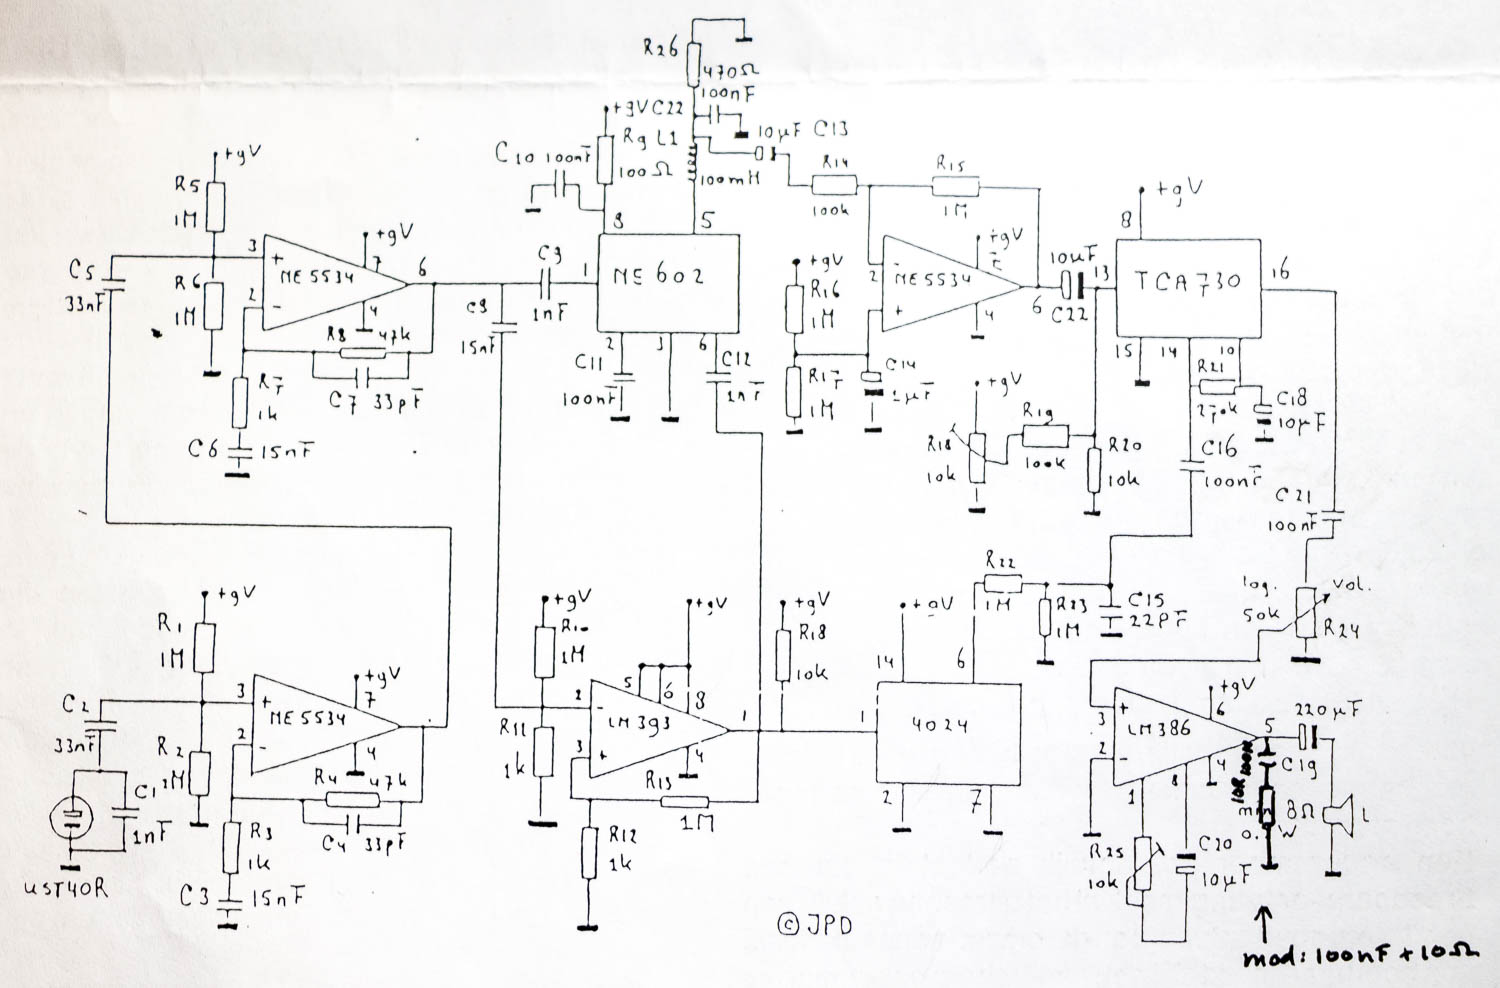 R26
470Ω
100nF
+9V C22
10µF C13
R9 L1
C10 100nF
100Ω
100mH
R14
R15
100k
1M
+9V
R5
1M
+9V
8
5
8
+9V
3
+
NE5534
7
6
C9
1
NE602
+9V
2
-
NE5534
7
+9V
10µF
13
TCA730
16
C5
33nF
R6
1M
2
-
4
1nF
R16
1M
+
4
6
C22
R8 47k
C9
15nF
2
3
6
C11
C12
100nF
1nF
R17
1M
C14
1µF
15
14
10
R21
270k
C18
10µF
R7
1k
C7 33pF
+9V
R18
10k
R19
100k
R20
10k
C16
100nF
C6 15nF
C21
100nF
R22
1M
R23
1M
C15
22pF
log.
50k
vol.
R24
+9V
R1
1M
+9V
R10
1M
+9V
+9V
R18
10k
+9V
14
6
+9V
3
+
NE5534
7
2
-
4
C2
33nF
R2
1M
5
6
8
2
-
LM393
1
3
+
4
R11
1k
1
4024
2
7
+9V
3
+
LM386
6
5
220µF
2
-
4
C19
1
8
10R 100n
C1
1nF
R4 47k
C4 33pF
R3
1k
R13
1M
R12
1k
min
8Ω
L
W
R25
10k
C20
10µF
UST40R
C3 15nF
© JPD
mod: 100nF + 10Ω